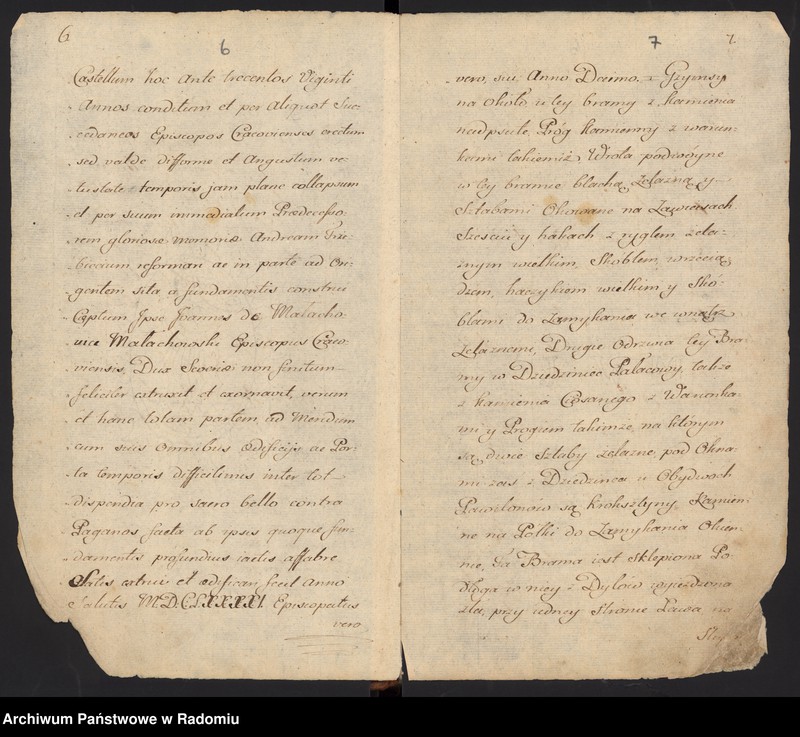 6
6
Castellum hoc ante trecentos Viginti
Annos conditum et per Aliquot Suc-
cedaneos Episcopos Cracovienses erectum
sed valde difforme et Angustum ve-
tustate temporis jam plane collapsum
et per suum immediatum Prædecesso-
rem gloriosæ memoriæ Andream Trze-
bicium reformari ac in parte ad Ori-
entem sita a fundamentis construi
Cæptum Ipse Joannes de Malacho-
wice Małachowski Episcopus Craco-
viensis, Dux Severiæ non finitum
feliciter extruxit et exornavit, verum
et hanc totam partem ad Meridiem
cum suis Omnibus Ædificijs ac Por-
ta temporis difficilimis inter tot
dispendia pro sacro bello contra
Paganos facta ab ipsis quoque fun-
damentis profundius iactis affabre
Satis extrui et ædificari fecit Anno
Salutis M.D.C.LXXXXI. Episcopatus
vero
7
7.
vero sui Anno Decimo. Gzymsy
na około u tey bramy z kamienia
nadpsute, Próg kamienny z warun-
kami takiemiż Wrota podwóyne
w tey bramie blachą żelazną y
Sztabami Okowane na Zawiasach
Sześciu y hakach z ryglem żela-
znym wielkim, Skoblem, wrzecią-
dzem, haczykiem wielkim y Sko-
blami do Zamykania we wnątrz
żelaznemi, Drugie Odrzwia tey Bra-
my w Dziedziniec Pałacowy także
z kamienia Ciosanego z Warunka-
mi y Progiem takimże, na którym
są dwie Sztaby żelazne, pod Okna-
mi zaś z Dziedzińca u Obydwóch
Pawilonów są kroksztyny Kamien-
ne na Polki do Zamykania Okien-
nic, Ta Brama iest Sklepiona Po-
dłoga w niey z Dylów wyieżdżona
zła, przy iedney stronie Ława na
Archiwum Państwowe w Radomiu